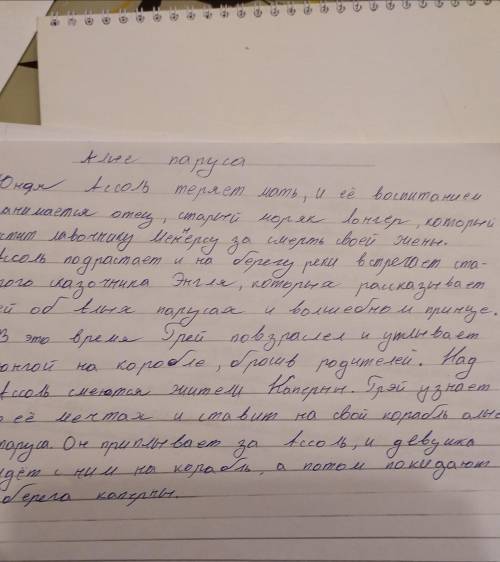 Алые паруса
Юндя Ассоль теряет мать, и её воспитанием
анимается отец, старый моряк Лонгер, который
стит лавочнику Меннерсу за смерть своей жены.
Ассоль подрастает и на берегу реки встречает ста-
рого сказочника Эгля, который рассказывает
ей об Алых парусах и волшебном принце.
В это время Грей повзрослел и уплывает
юнгой на корабле, бросив родителей. Над
Ассоль смеются жители Каперны. Грэй узнает
о её мечтах и ставит на свой корабль алые
паруса. Он приплывает за Ассоль, и девушка
идёт с ним на корабль, а потом покидают
берега каперны.